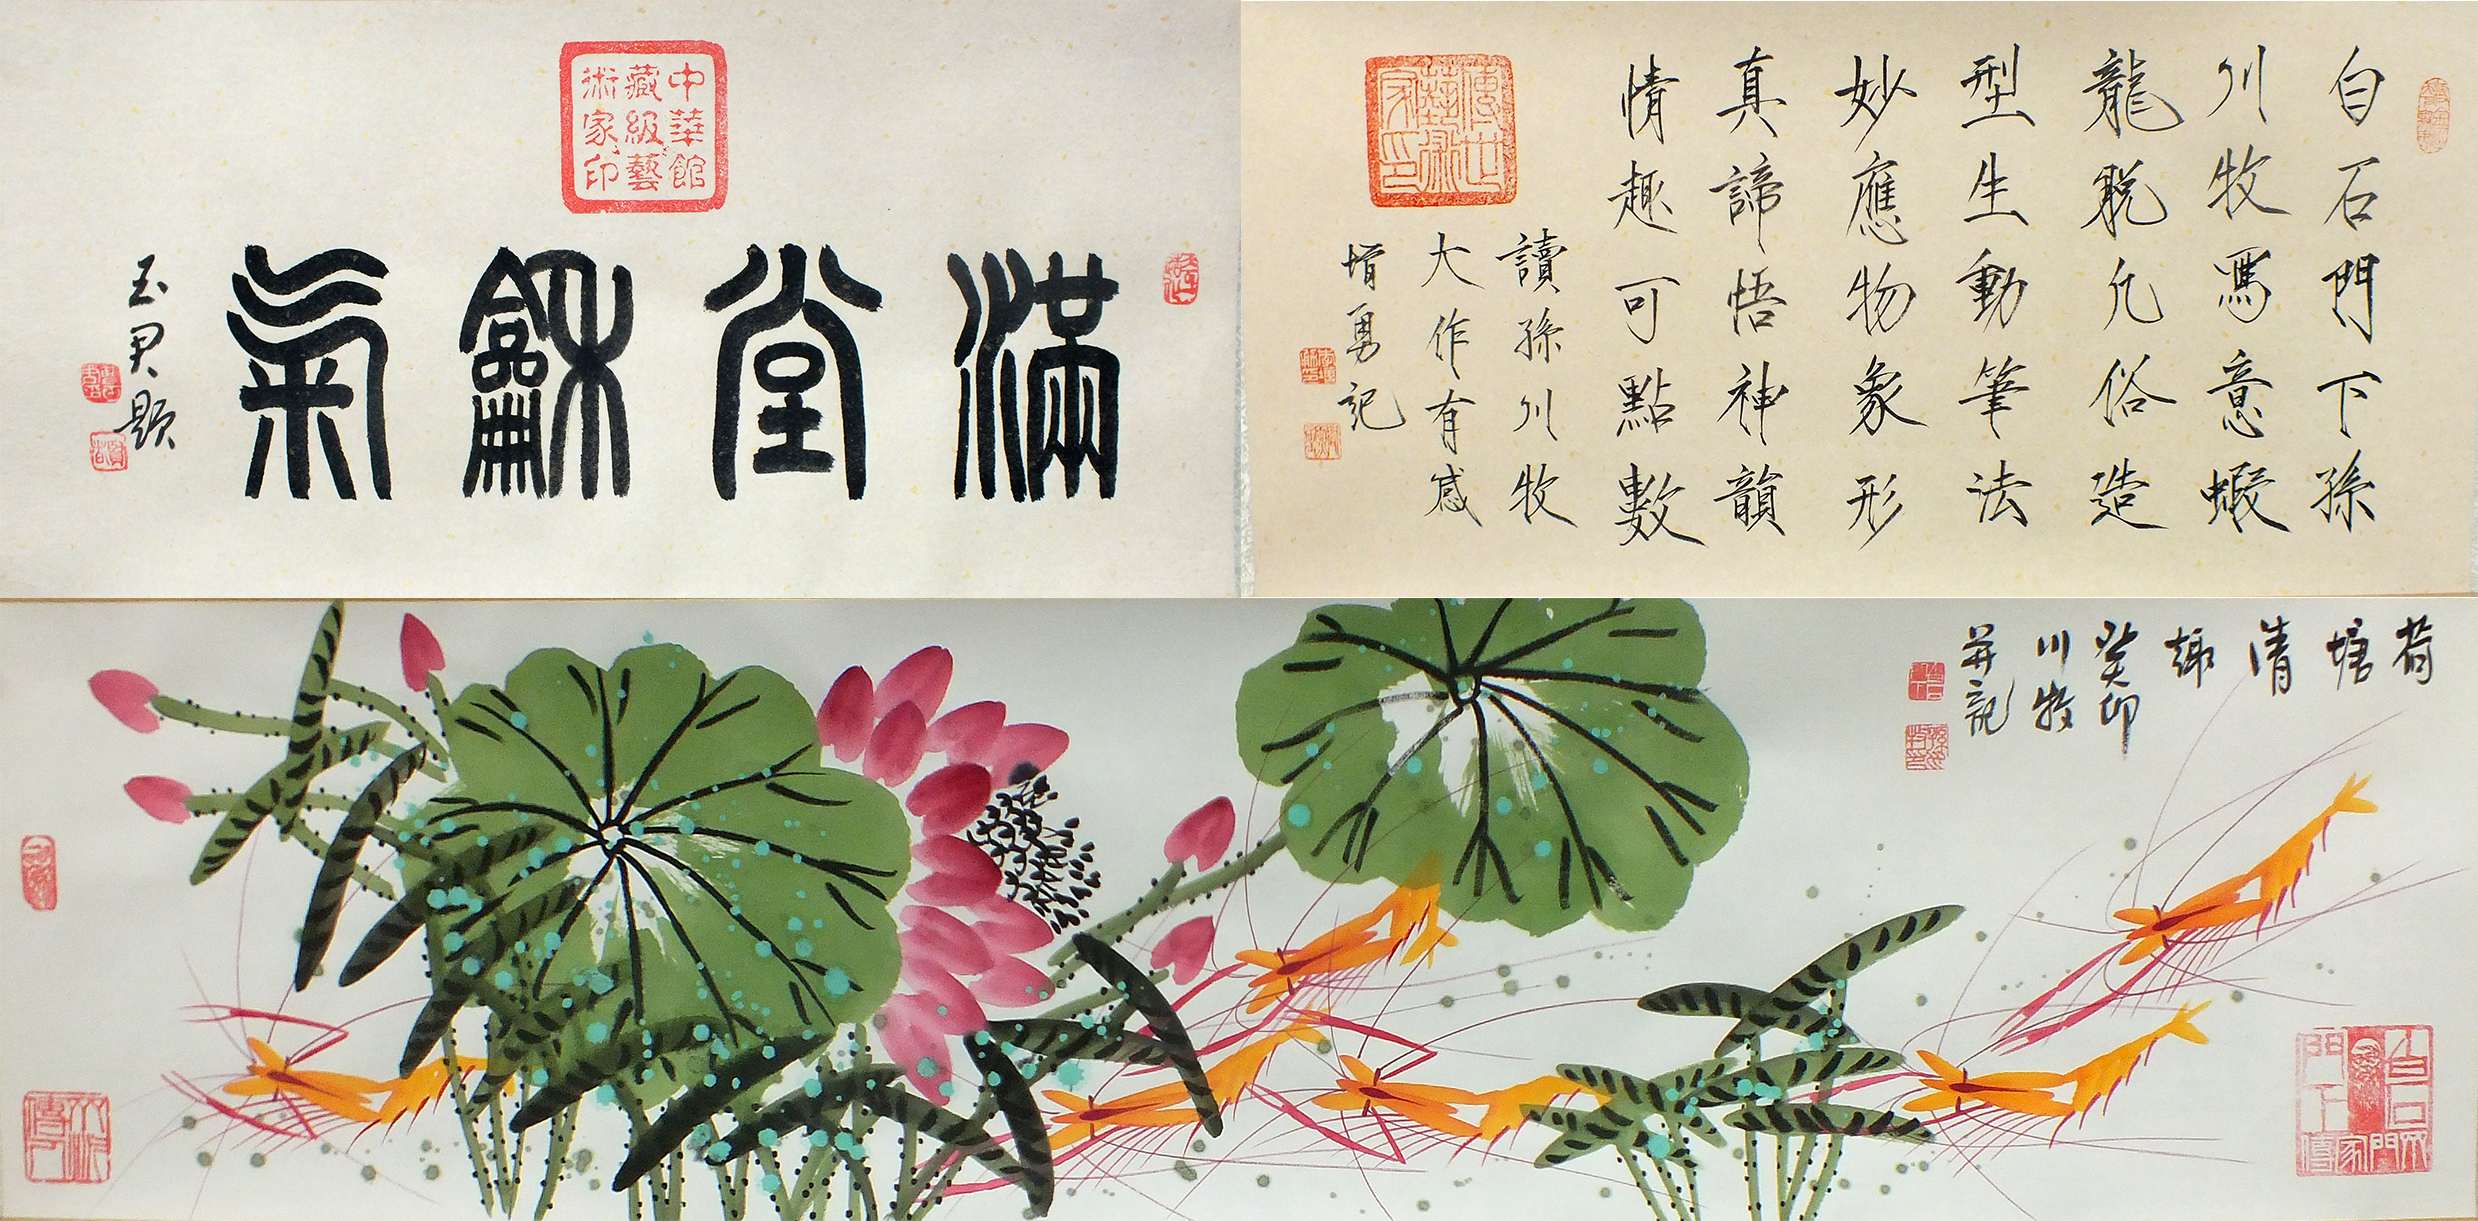 中華館
藏級藝
術家印
滿堂龢氣
玉君題
白石門下孫
川牧寫意蝦
龍脫凡俗造
型生動筆法
妙應物象形
真諦悟神韻
情趣可點數
讀孫川牧
大作有感
增勇記
荷塘清趣
癸卯
川牧
并記